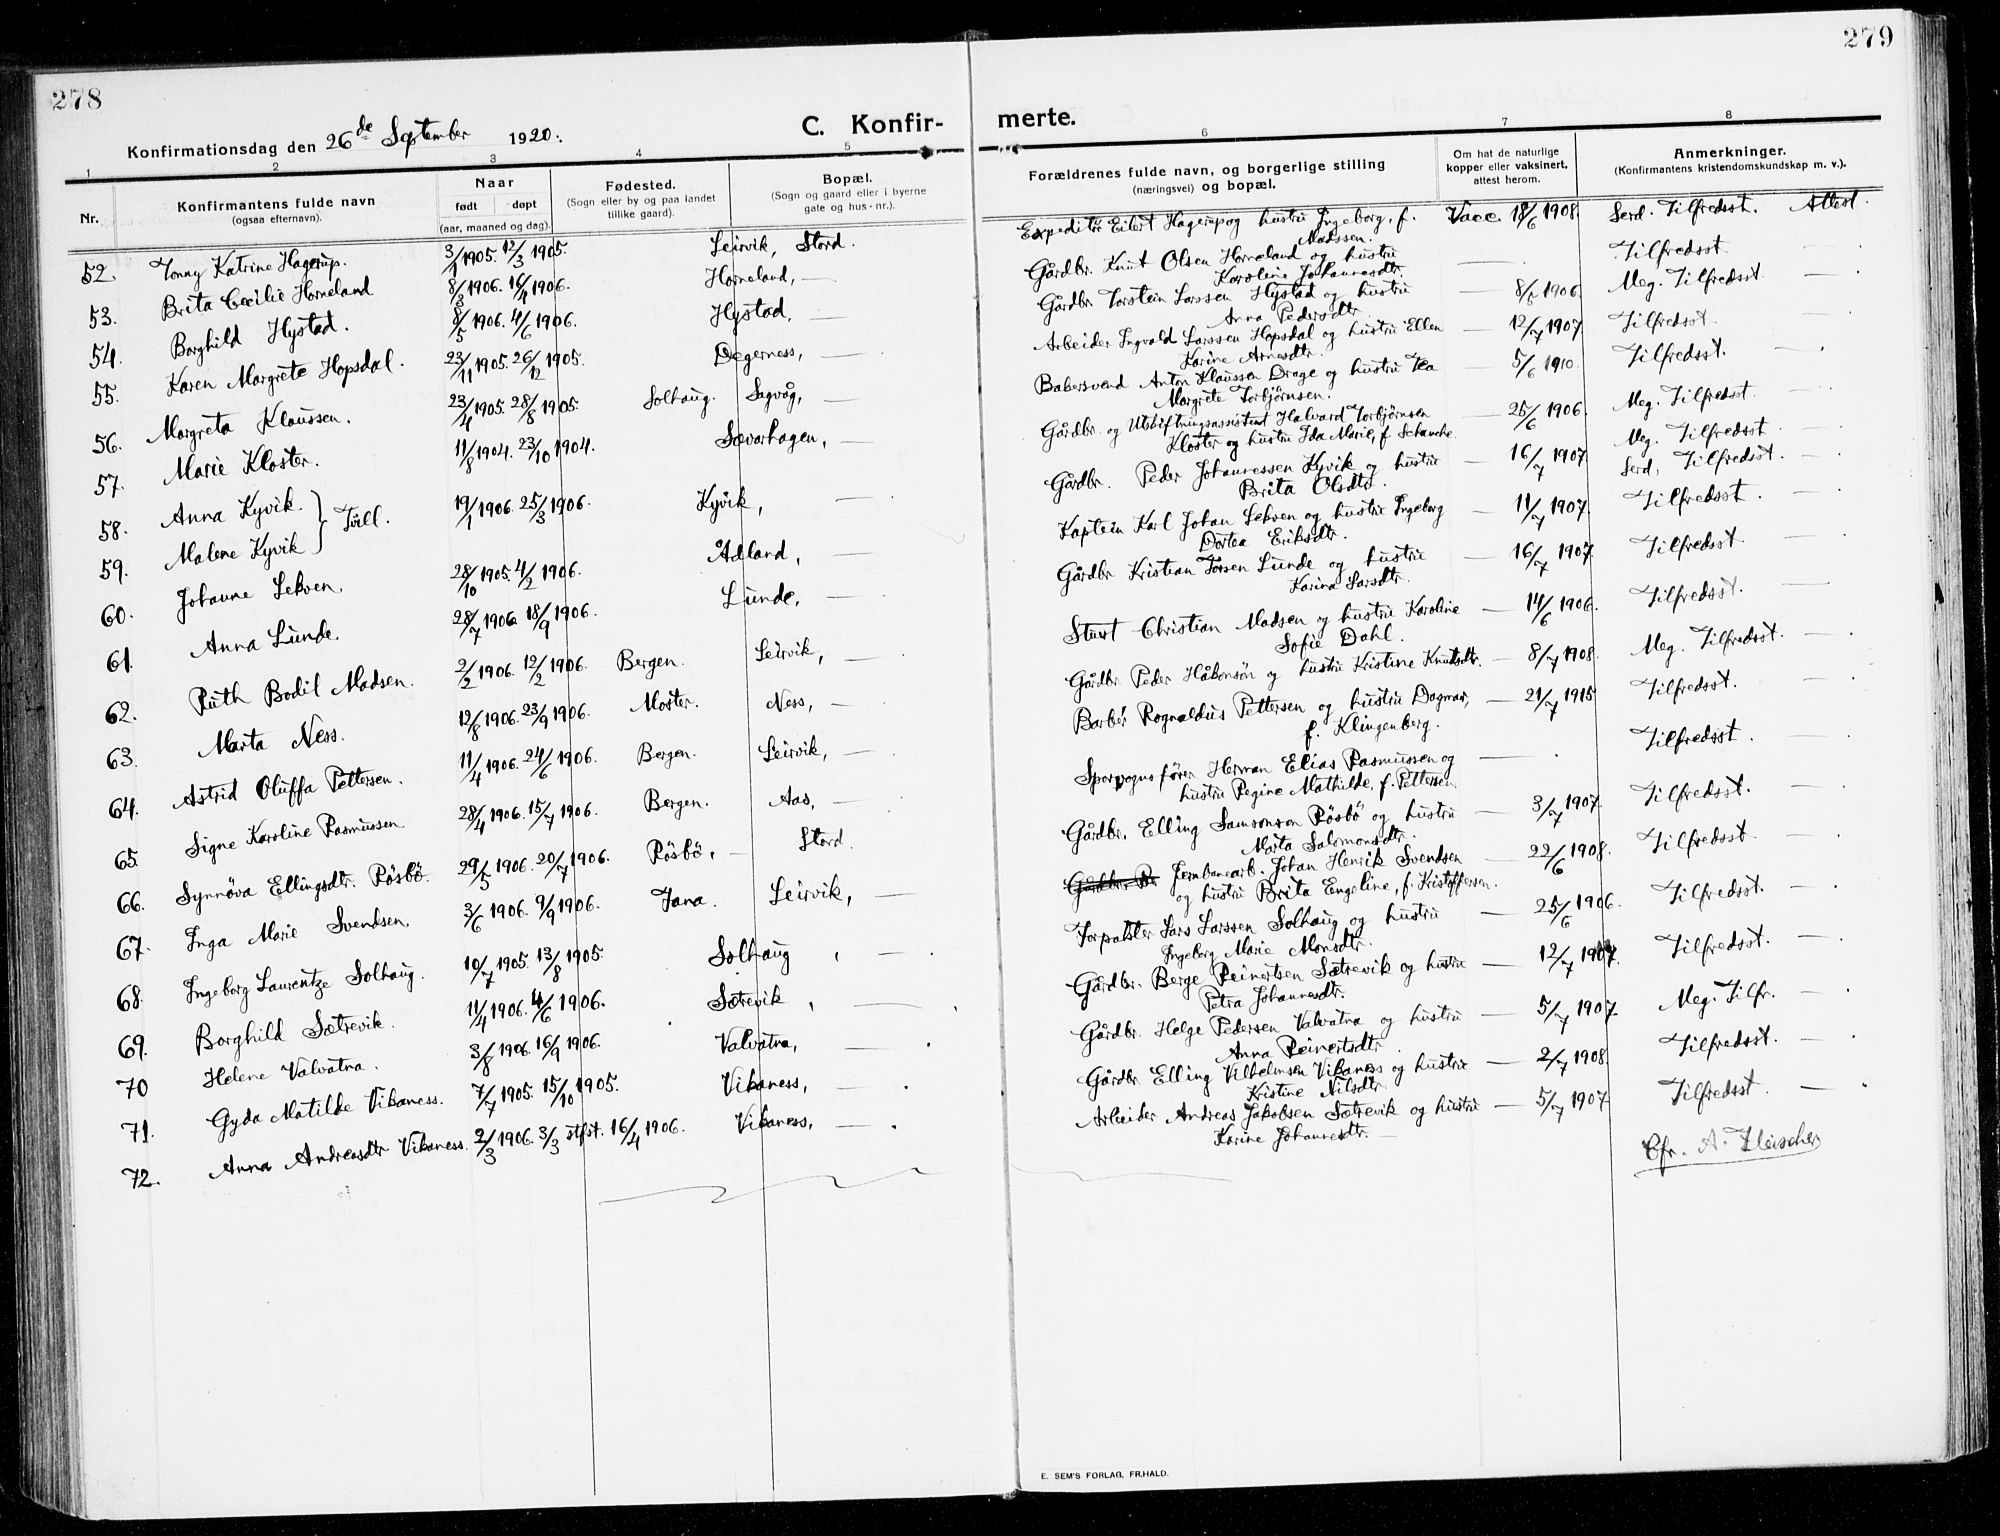 278
279
Konfirmationsdag den 26de September 1920.
C. Konfir-
merte.
1 2 3 4 5 6 7 8
Nr.
Konfirmantens fulde navn
(ogsaa efternavn).
Naar
født døpt
(aar, maaned og dag).
Fødested.
(Sogn eller by og paa landet
tillike gaard).
Bopæl.
(Sogn og gaard eller i byerne
gate og hus-nr.).
Forældrenes fulde navn, og borgerlige stilling
(næringsvei) og bopæl.
Om hat de naturlige
kopper eller vaksinert,
attest herom.
Anmerkninger.
(Konfirmantens kristendomskundskap m. v.).
52. Tonny Katrine Hagerup. 3/1 1905. 12/3 1905. Leirvik, Stord. Expeditør Eilert Hagerup og hustru Ingeborg, f. Vacc. 18/6 1908. Serd. Tilfredsst. Attest
Madssen.
53. Brita Cecilie Horneland 8/3 1906. 16/4 1906. Horneland, — Gårdbr. Knut Olsen Horneland og hustru — Tilfredsst —
Karoline Johannesdtr.
54. Borghild Hystad. 8/5 1906. 4/6 1906. Hystad, — Gårdbr Torstein Larssen Hystad og hustru — 8/6 1906. Meg. Tilfredsst —
Anna Pedersdtr.
55. Karen Margrete Hopsdal. 23/11 1905. 26/12 1905. Degerness, — Arbeider Ingvald Larssen Hopsdal og hustru Ellen — 12/7 1907. Tilfredsst —
Karine Arnesdtr.
56. Margreta Klaussen. 23/4 1905. 28/8 1905. Solhaug. Sagvåg, — Bakersvend Anton Klaussen Drage og hustru Tea — 5/6 1910. Tilfredsst. —
Margrete Torbjørnsen.
57. Marie Kloster. 11/8 1904. 23/10 1904. Sævarhagen, — Gårdbr. og Utskiftningsassistent Halvard Torbjørnsen — 25/6 1906. Meg. Tilfredsst —
Kloster og hustru Ida Marie, f. Schanche.
58. Anna Kyvik. } Tvill. 19/1 1906. 25/3 1906. Kyvik, — Gårdbr. Peder Johannessen Kyvik og hustru — 16/7 1907. Meg. Tilfredsst —
59. Malene Kyvik Brita Olsdtr. Serd. Tilfredsst. —
60. Johanne Lekven 28/10 1905. 4/2 1906. Ådland, — Kaptein Karl Johan Lekven og hustru Ingeborg — 11/7 1907. Tilfredsst. —
Dortea Eriksdtr.
61. Anna Lunde. 28/7 1906 18/9 1906. Lunde, — Gårdbr Kristian Tørsen Lunde og hustru — 16/7 1907. Tilfredsst. —
Karina Larsdtr.
62. Ruth Bodil Madsen. 2/2 1906. 12/2 1906. Bergen. Leirvik, — Stuert Christian Madsen og hustru Karoline — 14/6 1906. Tilfredsst. —
Sofie Dahl.
63. Marta Ness. 12/8 1906. 23/9 1906. Moster. Ness, — Gårdbr Peder Håkonsøn og hustru Kristine Knutsdtr. — 8/7 1908. Meg. Tilfredsst. —
64. Astrid Oluffa Pettersen. 11/4 1906. 24/6 1906. Bergen. Leirvik, — Barber Rognaldus Pettersen og hustru Dagmar, — 21/7 1915 Tilfredsst. —
f. Klingenberg.
65. Signe Karoline Rasmussen 28/4 1906. 15/7 1906. Bergen. Aas, — Sporvognsfører Herman Elias Rasmussen og — Tilfredsst. —
hustru Regine Mathilde, f. Pettersen.
66. Synnöva Ellingsdtr. Rösbö. 29/5 1906. 20/7 1906. Rösbö, — Stord. Gårdbr. Elling Samsonson Rösbö og hustru — 3/7 1907. Tilfredsst. —
Marta Salomonsdtr.
67. Inga Marie Svendsen 3/6 1906. 9/9 1906. Jana. Leirvik, — Jernbanearb. Johan Henrik Svendsen — 22/6 1908. Tilfredsst —
og hustru Brita Engeline, f. Kristoffersen.
68. Ingeborg Laurentze Solhaug. 10/7 1905. 13/8 1905. Solhaug , — Lars Larssen Solhaug og hustru — 25/6 1906. Tilfredsst. —
Ingeborg Marie Monsdtr.
69. Borghild Sætrevik. 11/4 1906. 4/6 1906. Sætrevik , — Gårdbr. Berge Reinertsen Sætrevik og hustru — 12/7 1907. Tilfredsst. —
Petra Johannesdtr.
70 Helene Valvatna. 3/8 1906. 16/9 1906. Valvatna, — Gårdbr. Helge Pedersen Valvatna og hustru — 5/7 1907. Meg. Tilfr. —
Anna Reinertsdtr.
71. Gyda Matilde Vikaness. 7/7 1905. 15/10 1905. Vikaness, — Gårdbr Elling Vilhelmsen Vikaness og hustru — 2/7 1908. Tilfredsst. —
Kristine Nilsdtr.
72. Anna Andreasdtr Vikaness. 2/3 1906. 3/3 stfst. 16/4 1906. Vikaness, — Arbeider Andreas Jakobsen Sætrevik og hustru — 5/7 1907. Tilfredsst. —
Karine Johannesdtr. —
Cfr. A. Fleischer
E. SEM'S FORLAG, FR.HALD.